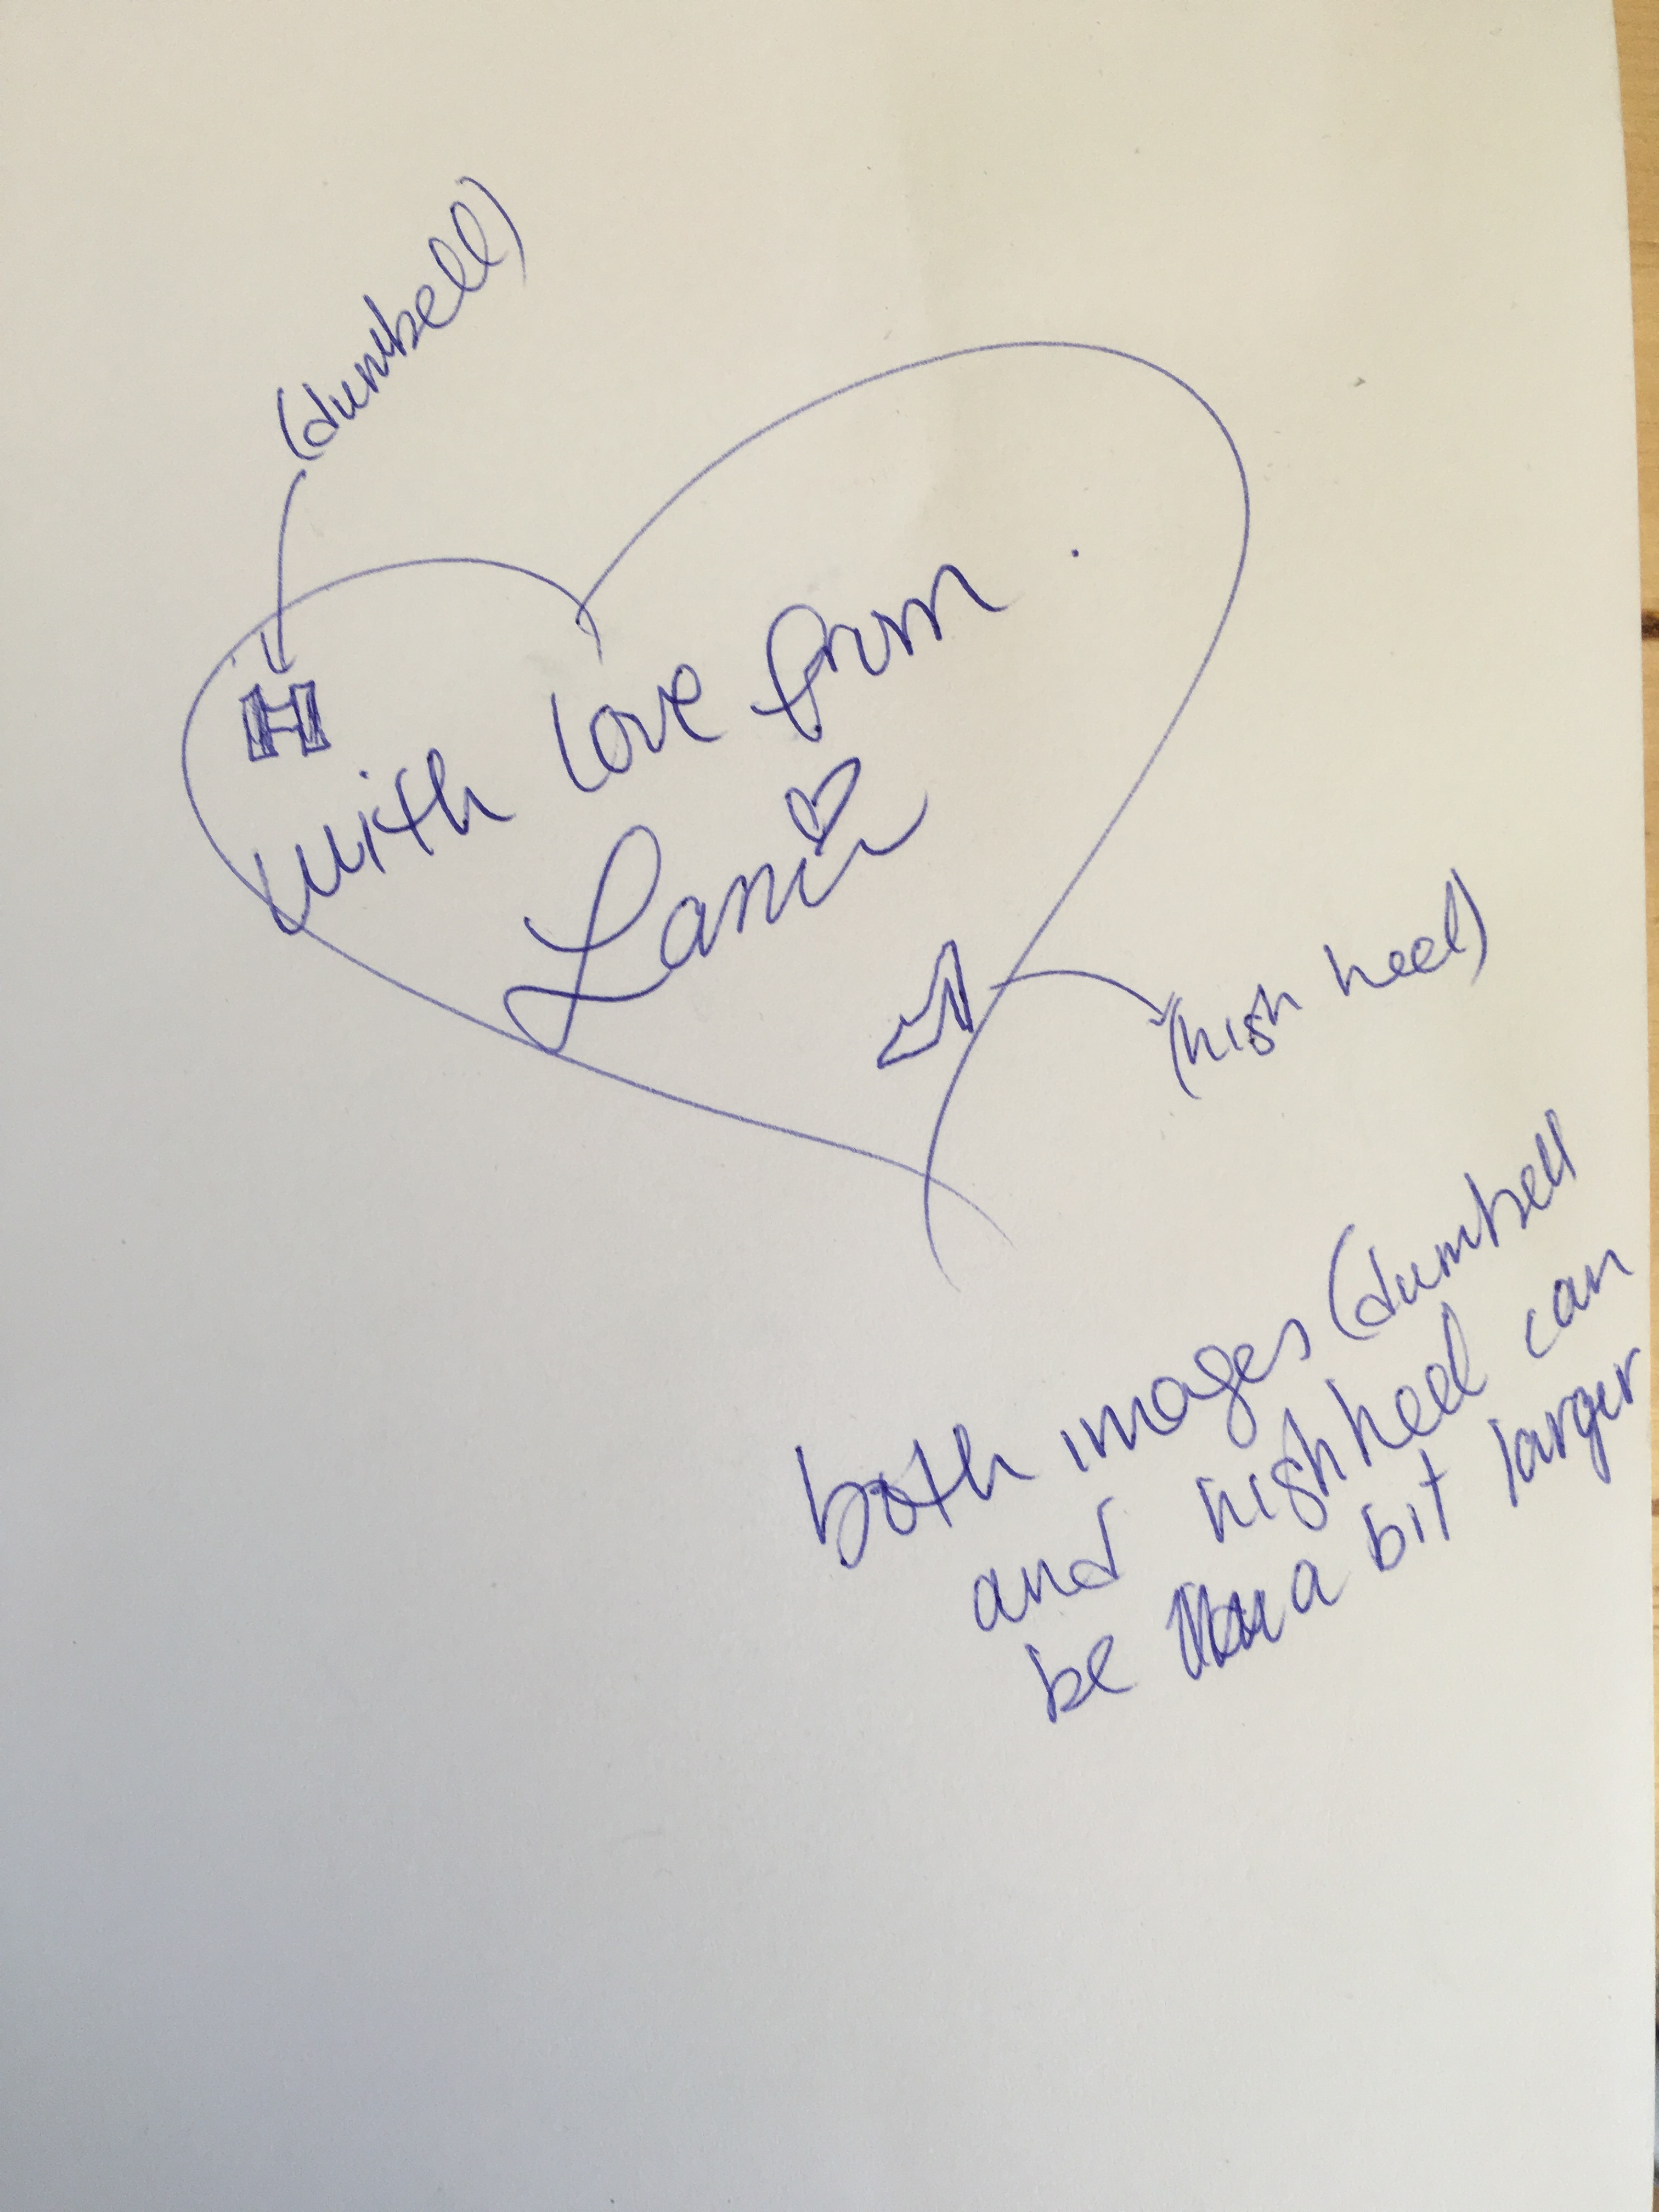 (dumbell)
with love from
(high heel)
both images (dumbell
and high heel can
be a bit larger